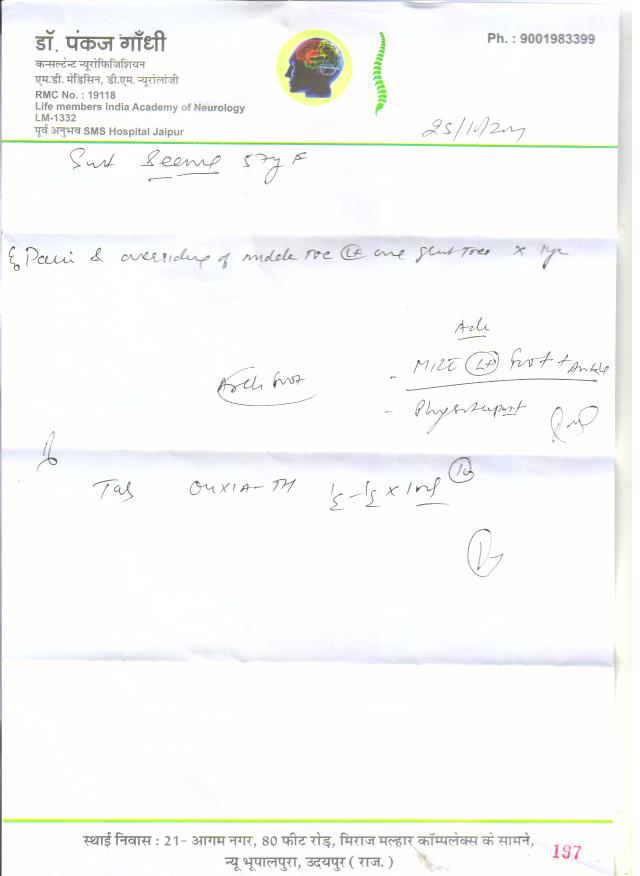 डॉ. पंकज गाँधी
कन्सल्टेन्ट न्यूरोफिजिशियन
एम.डी. मेडिसिन, डी.एम. न्यूरोलोजी
RMC No. : 19118
Life members India Academy of Neurology
LM-1332
पूर्व अनुभव SMS Hospital Jaipur
Ph. : 9001983399
Smt Seema 57y F
Pain & overriding of middle toe Lt one great toes x 1yr
Adv
- MRI Lt foot + Ankle
- Physiotherapist
Tab OUXIA-TH
स्थाई निवास : 21- आगम नगर, 80 फीट रोड़, मिराज मल्हार कॉम्पलेक्स के सामने,
न्यू भूपालपुरा, उदयपुर ( राज. )
197